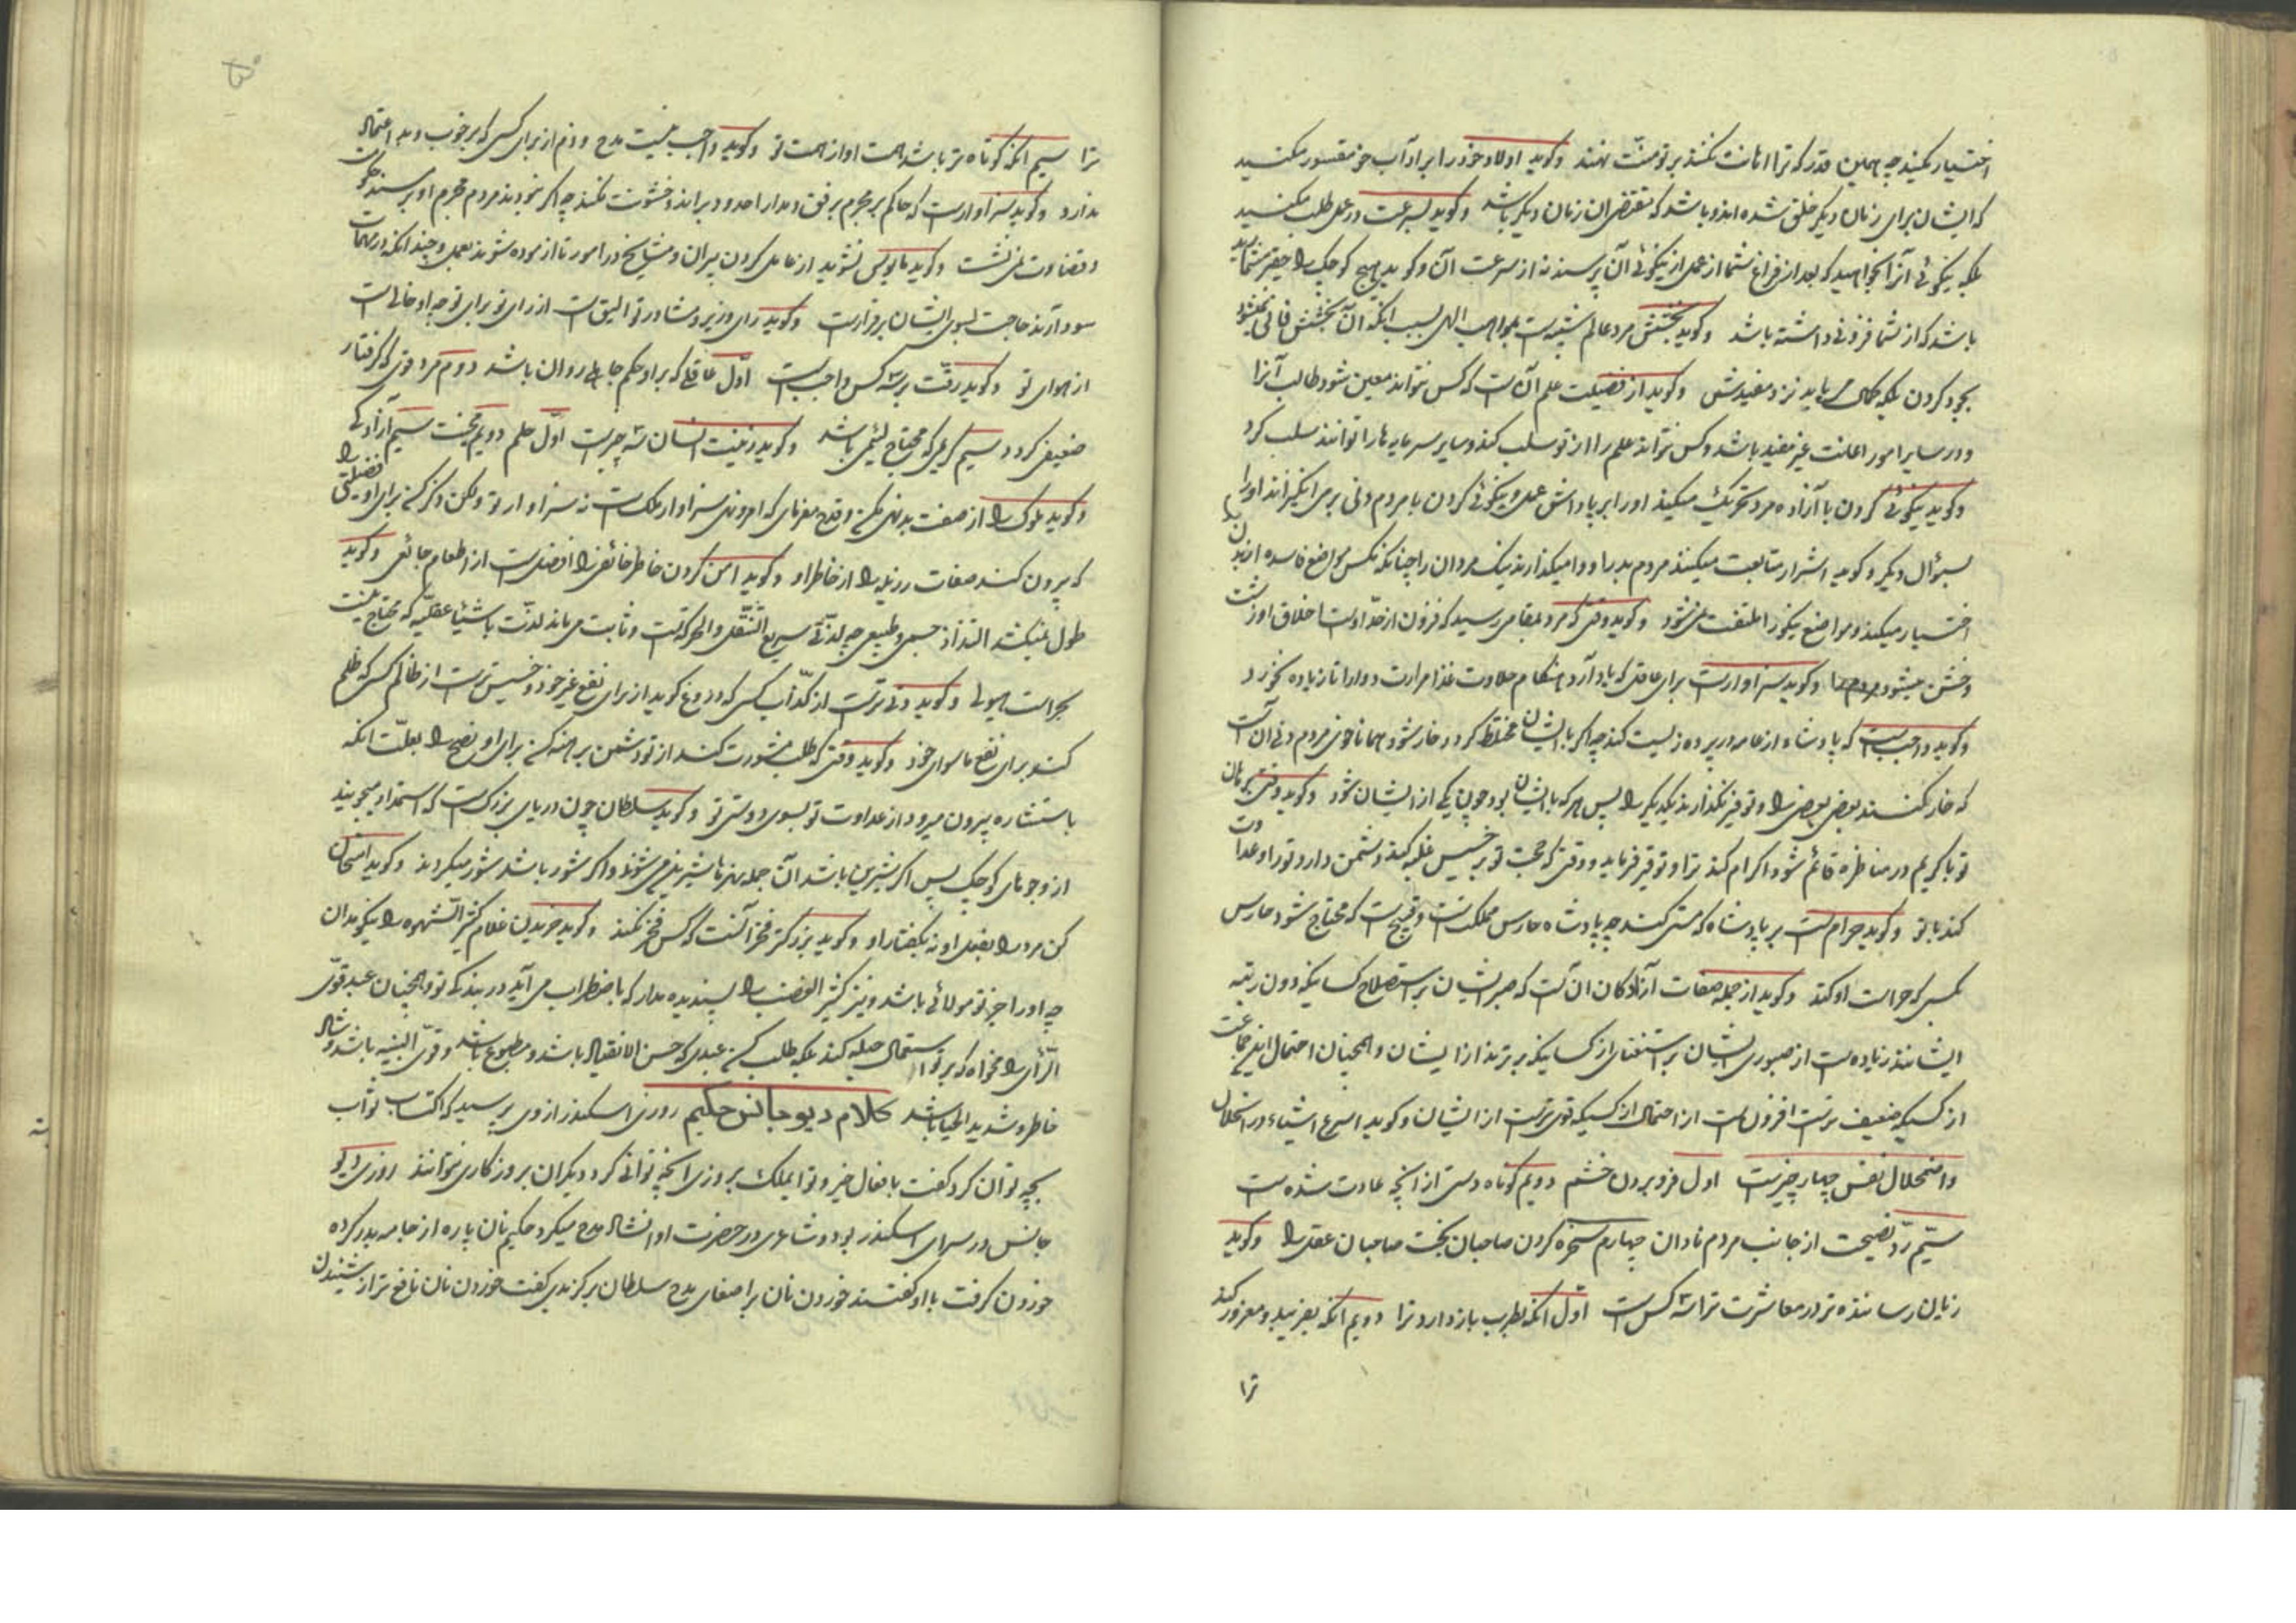 اختیار مکنید چه همین قدر که ترا اهانت نکنند بر تو منّت نهند وکوید اولاد خود را بر آداب خود مقسور مکنید
که ایشان برای زمان دیکر خلق شده اند و باشد که مقتضی ان زمان دیکر باشد وکوید سرعت در عمل طلب مکنید
بلکه نیکوئی آنرا بخواهید که بعد از فراغ شما از عمل از نیکوئی آن پرسند نه از سرعت آن وکوید هیچ کوچک را حقیر مشمارید
باشد که از شما فزونی داشته باشد وکوید بخشش مرد عالم شبیه است بمواهب الهی بسبب انکه آن بخشش فانی نمیشود
بجود کردن بلکه کمال می یابد نزد مفیدش وکوید از فضیلت علم آن است که کس نتواند معین شود طالب آنرا
و در سایر امور اعانت غیر مفید باشد و کس نتواند علم را از تو سلب کند و سایر سرمایه ها را توانند سلب کرد
وکوید نیکوئی کردن با آزاده مرد تحریک میکند او را بر پاداش عمل و نیکوئی کردن با مردم دنی برمی انکیزاند او را
بسؤال دیکر وکوید اشرار متابعت میکنند مردم بد را و وامیکذارند نیک مردان را چنانکه مکس مواضع فاسده از بدن
اختیار میکند و مواضع نیکو را ملتفت نمی شود وکوید وقتی که مرد بمقامی رسید که فزون از حدّ اوست اخلاق او زشت
و خشن میشود مردم را وکوید سزاوار است برای عاقل که یاد آرد هنکام حلاوت غذا مرارت دوا را تا زیاده نخورد
وکوید واجب است که پادشاه از عامه در پرده زیست کند چه اکر با ایشان مختلط کردد خار شود همانا خوی مردم دنی آن است
که خار کنند بعض بعضی را و توقیر نکذارند یکدیکر را پس هر که با ایشان بود چون یکی از ایشان شود وکوید وقتی که زبان
تو با کریم در مناظره قائم شود اکرام کند ترا و توقیر فرماید و وقتی که حجت تو بر خسیس غلبه کند دشمن دارد تو را و عداوت
کند با تو وکوید حرام است بر پادشاه که مستی کند چه پادشاه حارس مملکت است و قبیح است که محتاج شود حارس
بکسی که حراست او کند وکوید از جمله صفات آزادکان ان است که صبر ایشان بر استصلاح کسانیکه دون رتبه
ایشانند زیاده است از صبوری ایشان بر استغنای از کسانیکه برترند از ایشان و همچنان احتمال این جماعت
از کسیکه ضعیف تر است افزون است از احتمال از کسیکه قوی تر است از ایشان وکوید اسرع اشیاء در انحلال
و اضمحلال نفس چهار چیز است اول فرو بردن خشم دویم کوتاه دستی از آنچه عادت شده است
سیّم ردّ نصیحت از جانب مردم نادان چهارم سخره کردن صاحبان بخت صاحبان عقل را وکوید
زیان رساننده تر در معاشرت ترا سه کس است اوّل انکه بطرب بازدارد ترا دویم انکه بفریبد و مغرور کند
ترا
ترا سیم انکه کوتاه تر باشد همت او از همت تو وکوید واجب نیست مدح و ذم از برای کسی که بر خوب و بد اعتمال
ندارد وکوید سزاوار است که حاکم بر مجرم برفق و مدارا حدود براند و خشونت نکند چه اکر نبودند مردم مجرم او بر مسند حکومت
و قضاوت نمی نشست وکوید مایوس نشوید از عامل کردن پیران و مشایخ در امور تا ازموده شوند بعمل و چند انکه در مهمات
سود آرند حاجت بسوی ایشان برقرار است وکوید رای وزیر و مشاور تو الیق است از رای تو برای تو چه او خالی است
از هوای تو وکوید رقّت بر سه کس واجب است اوّل عاقلی که بر او حکم جاهلی روان باشد دوم مرد قوی که کرفتار
ضعیفی کردد سیم کریمی که محتاج لئیمی باشد وکوید زینت انسان سه چیز است اوّل حلم دویم محبّت سیم آزادکی
وکوید ملوک را از صفت بد نهی مکن و قدح مفرمای که امر و نهی سزاوار ملک است نه سزاوار تو ولکن ذکر کن برای او فضیلتی را
که بیرون کند صفات رذیله را از خاطر او وکوید امن کردن خاطر خائفی را افضل است از اطعام جائعی وکوید
طول نمیکشد التذاذ جسمی و طبیعی چه لذّتی سریع التنقّل و الحرکة است و ثابت می ماند لذّت باشیاء عقلیّه که محتاج نیست
بحراست هیولی وکوید دنی تر است از کذّاب کسی که دروغ کوید از برای نفع غیر خود و خسیس تر است از ظالم کسی که ظلم
کند برای نفع ماسوای خود وکوید وقتی که طلب مشورت کند از تو دشمن برهنه کن برای او نصح را بعلّت انکه
باستشاره بیرون میرود از عداوت تو بسوی دوستی تو وکوید سلطان چون دریای بزرک است که استمداد میجویند
از او جوهای کوچک پس اکر شیرین باشد آن جمله نهرها شیرین می شوند و اکر شور باشد شور میکردند وکوید امتحان
کن مرد را بفعل او نه بکفتار او وکوید بزرکتر فخر آنست که کس فخر نکند وکوید خریدن غلام کثیر الشّهوه را نیکو مدان
چه او را جز تو مولائی باشد و نیز کثیر الغضب را پسندیده مدار که باضطراب می آید در بندکی تو و همچنان عبد قوّی
الرّأی را مخواه که بر تو استعمال حیله کند بلکه طلب کن عبدی که حسن الانقیاد باشد و مطبوع باشد و قویّ البنیه باشد و شاد
خاطر و شدید الحیا باشد کلام دیوجانس حکیم روزی اسکندر از وی پرسید که اکتساب ثواب
بچه توان کرد کفت بافعال خیر و تو ایملک بروزی آنچه توانی کرد دیکران بروزکاری نتوانند روزی دیو
جانس در سرای اسکندر بود و شاعری در حضرت او انشاد مدح میکرد حکیم نان پاره از جامه بدر کرده
خوردن کرفت با او کفتند خوردن نان بر اصغای مدح سلطان برکزیدی کفت خوردن نان نافع تر از شنیدن